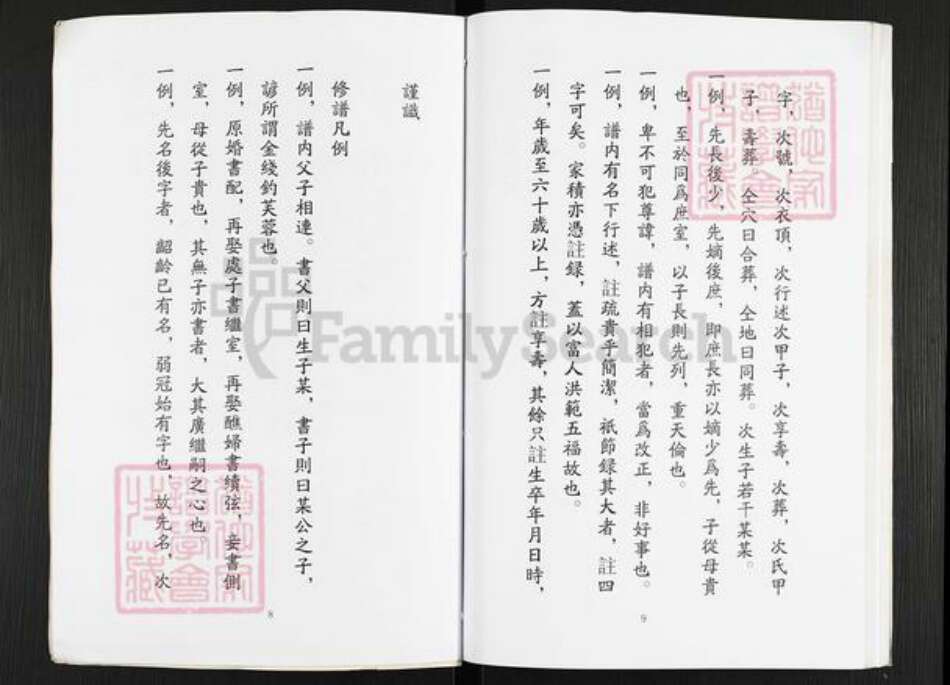 謹識
修譜凡例
一例，譜內父子相連。書父則曰生子某，書子則曰某公之子，
諺所謂金綫釣芙蓉也。
一例，原婚書配，再娶處子書繼室，再娶醮婦書續弦，妾書側
室，母從子貴也，其無子亦書者，大其廣繼嗣之心也
一例，先名後字者，齠齡已有名，弱冠始有字也，故先名，次
8
字，次號，次衣頂，次行述次甲子，次享壽，次葬，次氏甲
子，壽葬。仝穴曰合葬，仝地曰同葬。次生子若干某某。
一例，先長後少，先嫡後庶，即庶長亦以嫡少爲先，子從母貴
也，至於同爲庶室，以子長則先列，重天倫也。
一例，卑不可犯尊諱，譜內有相犯者，當爲改正，非好事也。
一例，譜內有名下行述，註疏貴乎簡潔，祇節録其大者，註四
字可矣。家積亦憑註録，蓋以富人洪範五福故也。
一例，年歲至六十歲以上，方註享壽，其餘只註生卒年月日時，
9
猶他家譜學會特藏
猶他家譜學會特藏
FamilySearch